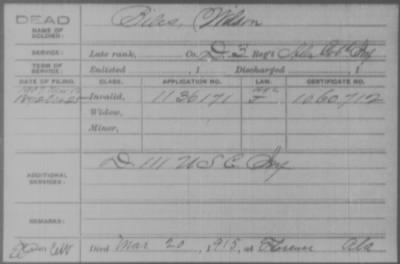 DEAD
NAME OF SOLDIER: Biles, Wilson
SERVICE: Late rank, Co. D. 3 Reg't Ala Col'd Inf
TERM OF SERVICE: Enlisted , 1 Discharged , 1
DATE OF FILING. CLASS. APPLICATION NO. LAW. CERTIFICATE NO.
Invalid, 1136171 1060712
Widow,
Minor,
ADDITIONAL SERVICES: D 111 U S C Inf
REMARKS:
Died Mar 20, 1915, at Florence Ala